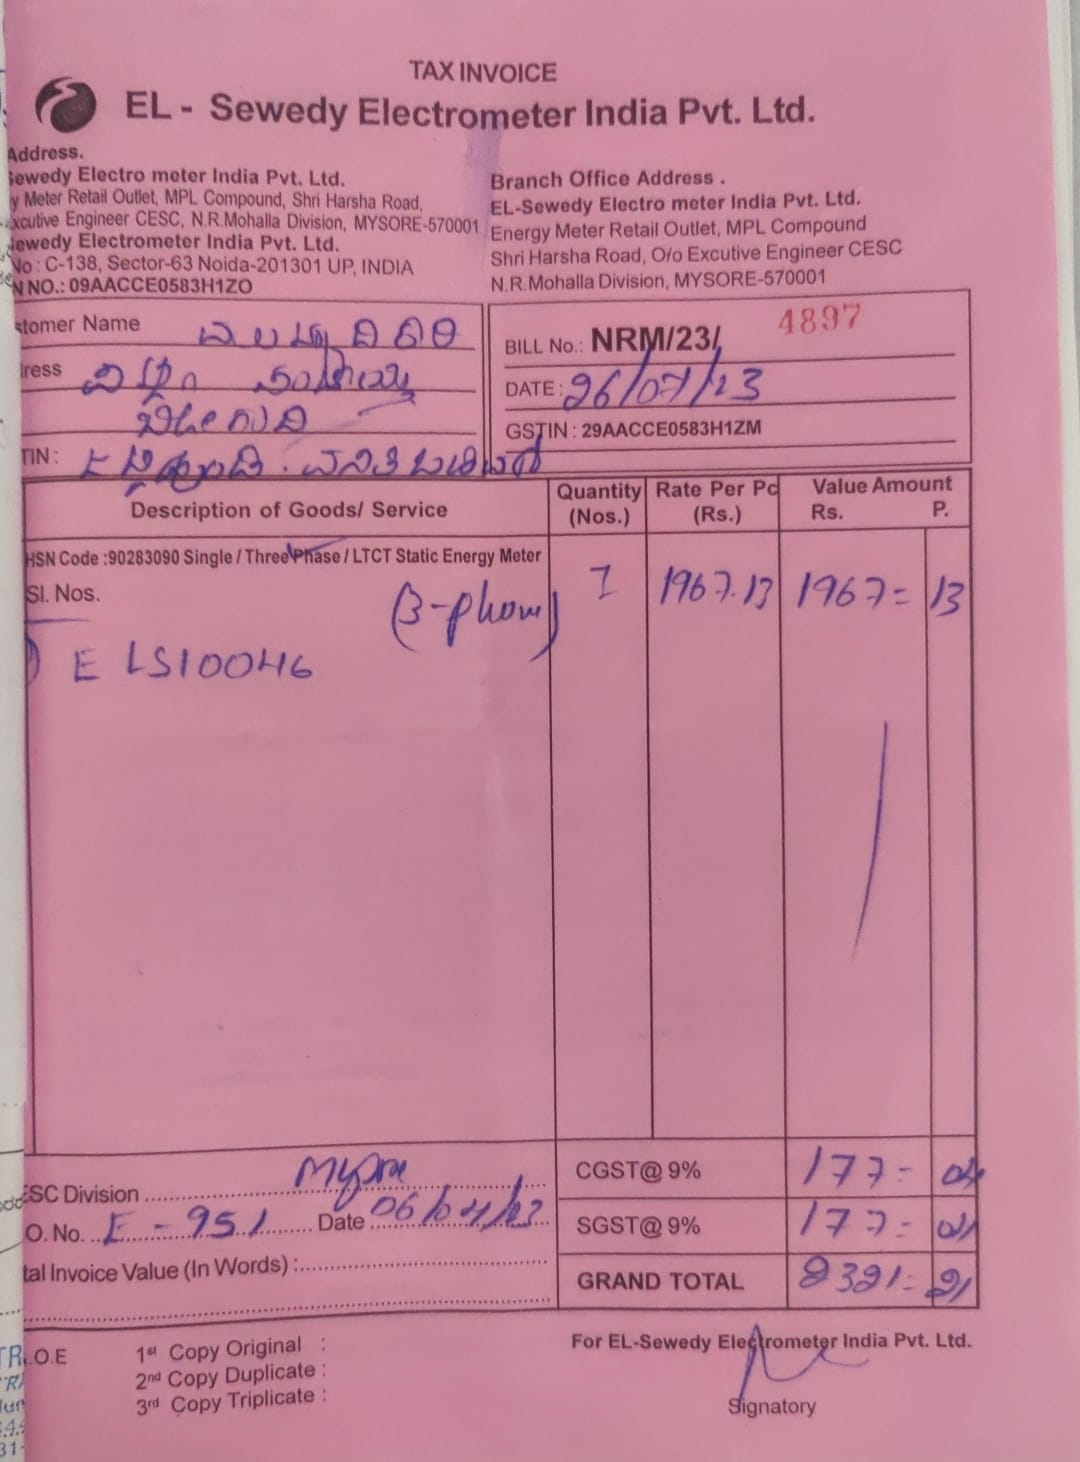 TAX INVOICE
EL - Sewedy Electrometer India Pvt. Ltd.
Address.
Sewedy Electro meter India Pvt. Ltd.
y Meter Retail Outlet, MPL Compound, Shri Harsha Road,
xcutive Engineer CESC, N.R.Mohalla Division, MYSORE-570001
Sewedy Electrometer India Pvt. Ltd.
No : C-138, Sector-63 Noida-201301 UP, INDIA
N NO.: 09AACCE0583H1ZO
Branch Office Address .
EL-Sewedy Electro meter India Pvt. Ltd.
Energy Meter Retail Outlet, MPL Compound
Shri Harsha Road, O/o Excutive Engineer CESC
N.R.Mohalla Division, MYSORE-570001
stomer Name
ress
TIN :
BILL No.: NRM/23/ 4897
DATE : 26/07/23
GSTIN : 29AACCE0583H1ZM
Description of Goods/ Service Quantity (Nos.) Rate Per Pc (Rs.) Value Amount Rs. P.
HSN Code :90283090 Single / Three Phase / LTCT Static Energy Meter
Sl. Nos. (3-phase) 1 1967.13 1967= 13
ELS10046
ESC Division Mysore
O. No. E-951 Date 06/04/23
tal Invoice Value (In Words) :
CGST@ 9% 177=
SGST@ 9% 177=
GRAND TOTAL 2321= 21
R.O.E
1st Copy Original :
2nd Copy Duplicate :
3rd Copy Triplicate :
For EL-Sewedy Electrometer India Pvt. Ltd.
Signatory